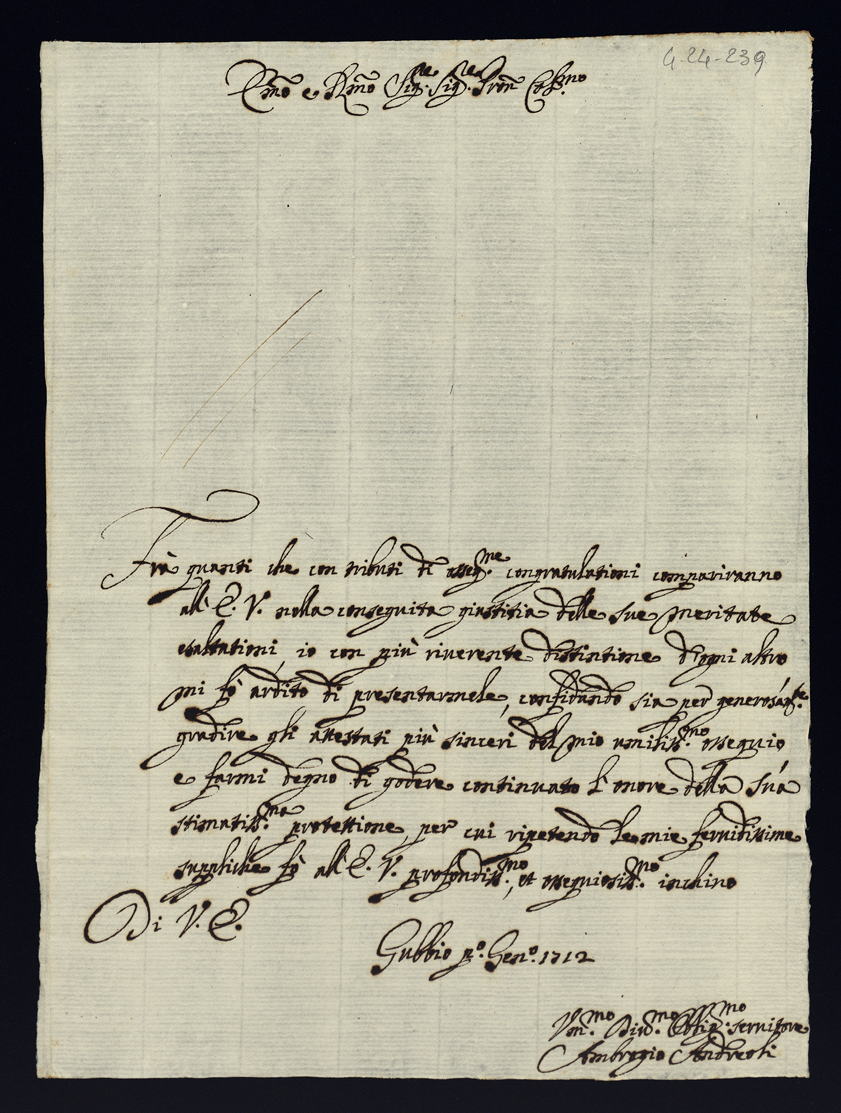 4-24-239
Em̃o e Rm̃o Sig.re Sig.re Pron̄ Col.mo
Frà quanti che con tributi di osseq.me congratulationi compariranno
all'E. V. nella conseguita giustitia delle sue meritate
esaltationi, io con più riverente distintione d'ogni altro
mi fò ardito di presentarmele, confidando sia per generosam.te
gradire gli attestati più sinceri del mio umiliss.mo ossequio
e farmi degno di godere continuato l'onore della sua
stimatiss.ma protettione, per cui ripetendo le mie fervidissime
suppliche fò all'E. V. profondiss.mo, et ossequiosiss.mo inchino
Di V. E.
Gubbio p.o Gen.o 1712
Um.mo Div.mo Obblig.mo servitore
Ambrogio Andreoli